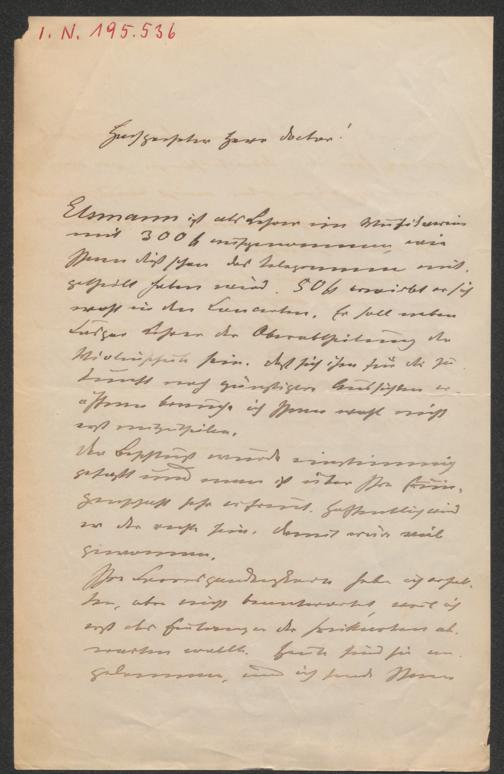 I. N. 195.536
Hochgeehrter Herr Doctor!
Elsmann ist als Lehrer im Musikverein
mit 300 f aufgenommen, wie
Ihnen dieß schon das Telegramm mit-
getheilt haben wird. 50 f erwirbt er sich
wohl in den Concerten. Er soll neben
Lehrer der Oberabtheilung der
Violinschule sein. Daß sich ihm für die Zu-
kunft noch günstigere Aussichten er-
öffnen brauche ich Ihnen wohl nicht
erst mitzutheilen.
Der Beschluß wurde einstimmig
gefaßt und man ist über Ihre
sehr erfreut. Hoffentlich wird
er der rechte sein, damit wäre viel
gewonnen.
Ihre habe ich erhal-
ten, aber nicht beantwortet, weil ich
erst das der ab-
warten wollte. Heute sind sie an-
gekommen, und ich sende Ihnen